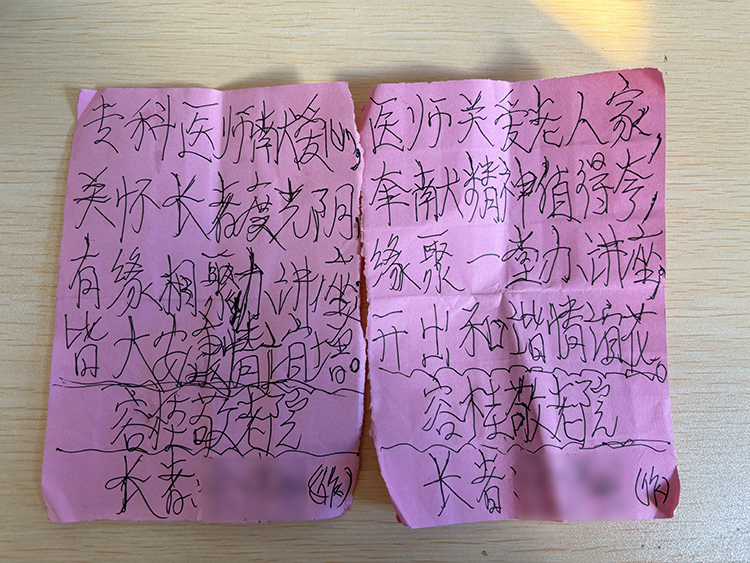 专科医师献爱心,
关怀长者度光阴,
有缘相聚办讲座,
皆大 情 增。
容桂敬老院
长者:
(作)
医师关爱老人家,
奉献精神值得夸,
缘聚一堂办讲座,
开出和谐情谊花。
容桂敬老院
长者:
(作)